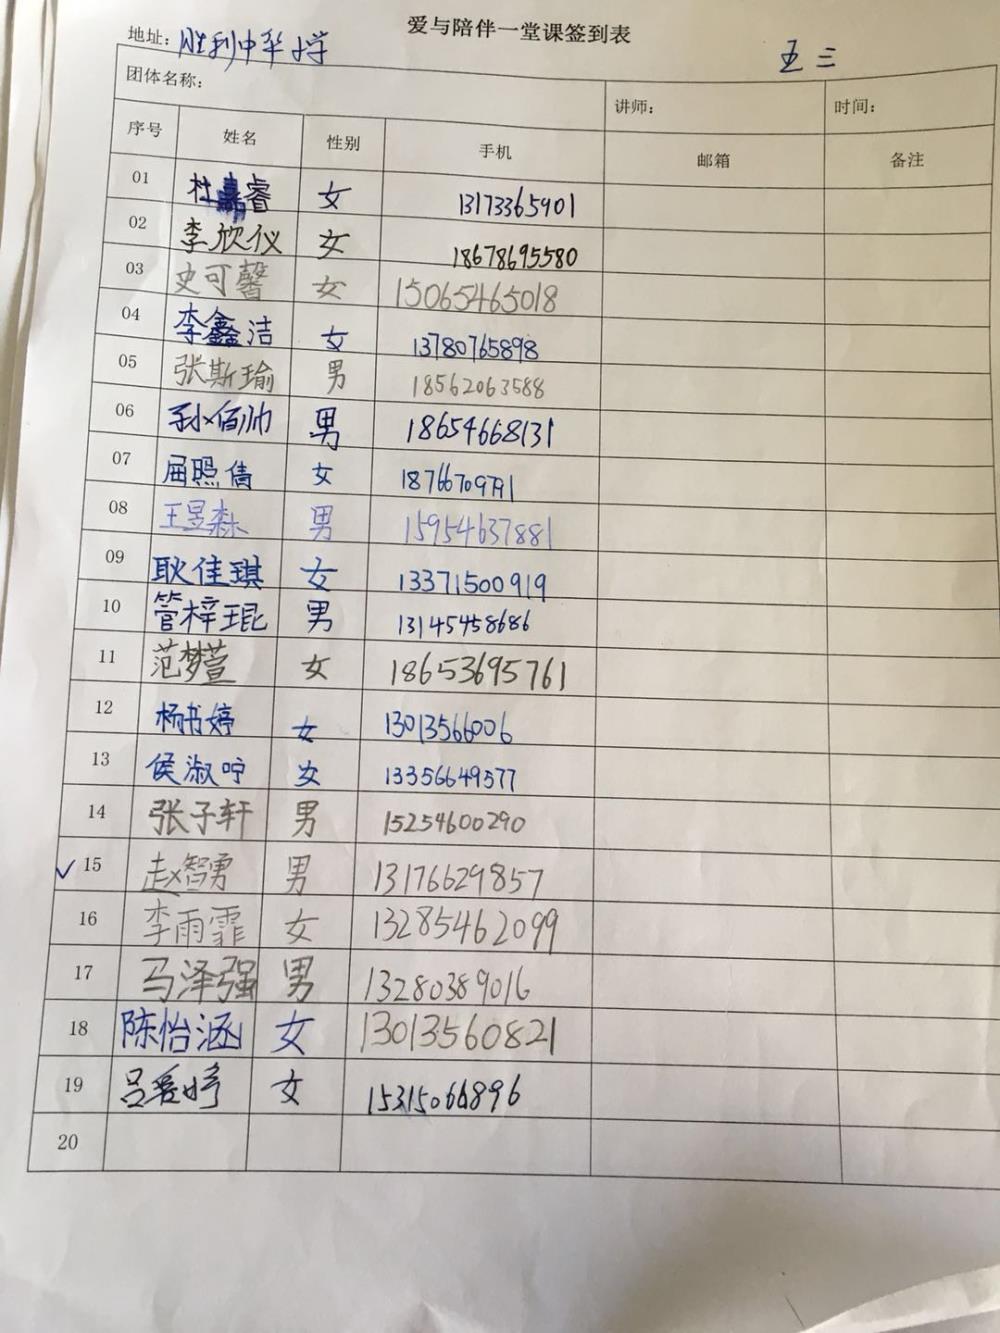 爱与陪伴一堂课签到表
地址：胜利中华小学 五三
团体名称： 讲师： 时间：
序号 姓名 性别 手机 邮箱 备注
01 杜嘉睿 女 13173365901
02 李欣仪 女 18678695580
03 史可馨 女 15065465018
04 李鑫洁 女 13780765898
05 张斯瑜 男 18562063588
06 孙佰帅 男 18654668131
07 屈照倩 女
08 王昱森 男 15954637881
09 耿佳琪 女 13371500919
10 管梓琨 男 13145458686
11 范梦萱 女 18653695761
12 杨书婷 女 13013566006
13 侯淑咛 女 13356649577
14 张子轩 男 15254600290
✓ 15 赵智勇 男 13176629857
16 李雨霏 女 13285462099
17 马泽强 男 13280389016
18 陈怡涵 女 13013560821
19 吕爱婷 女 15315066896
20